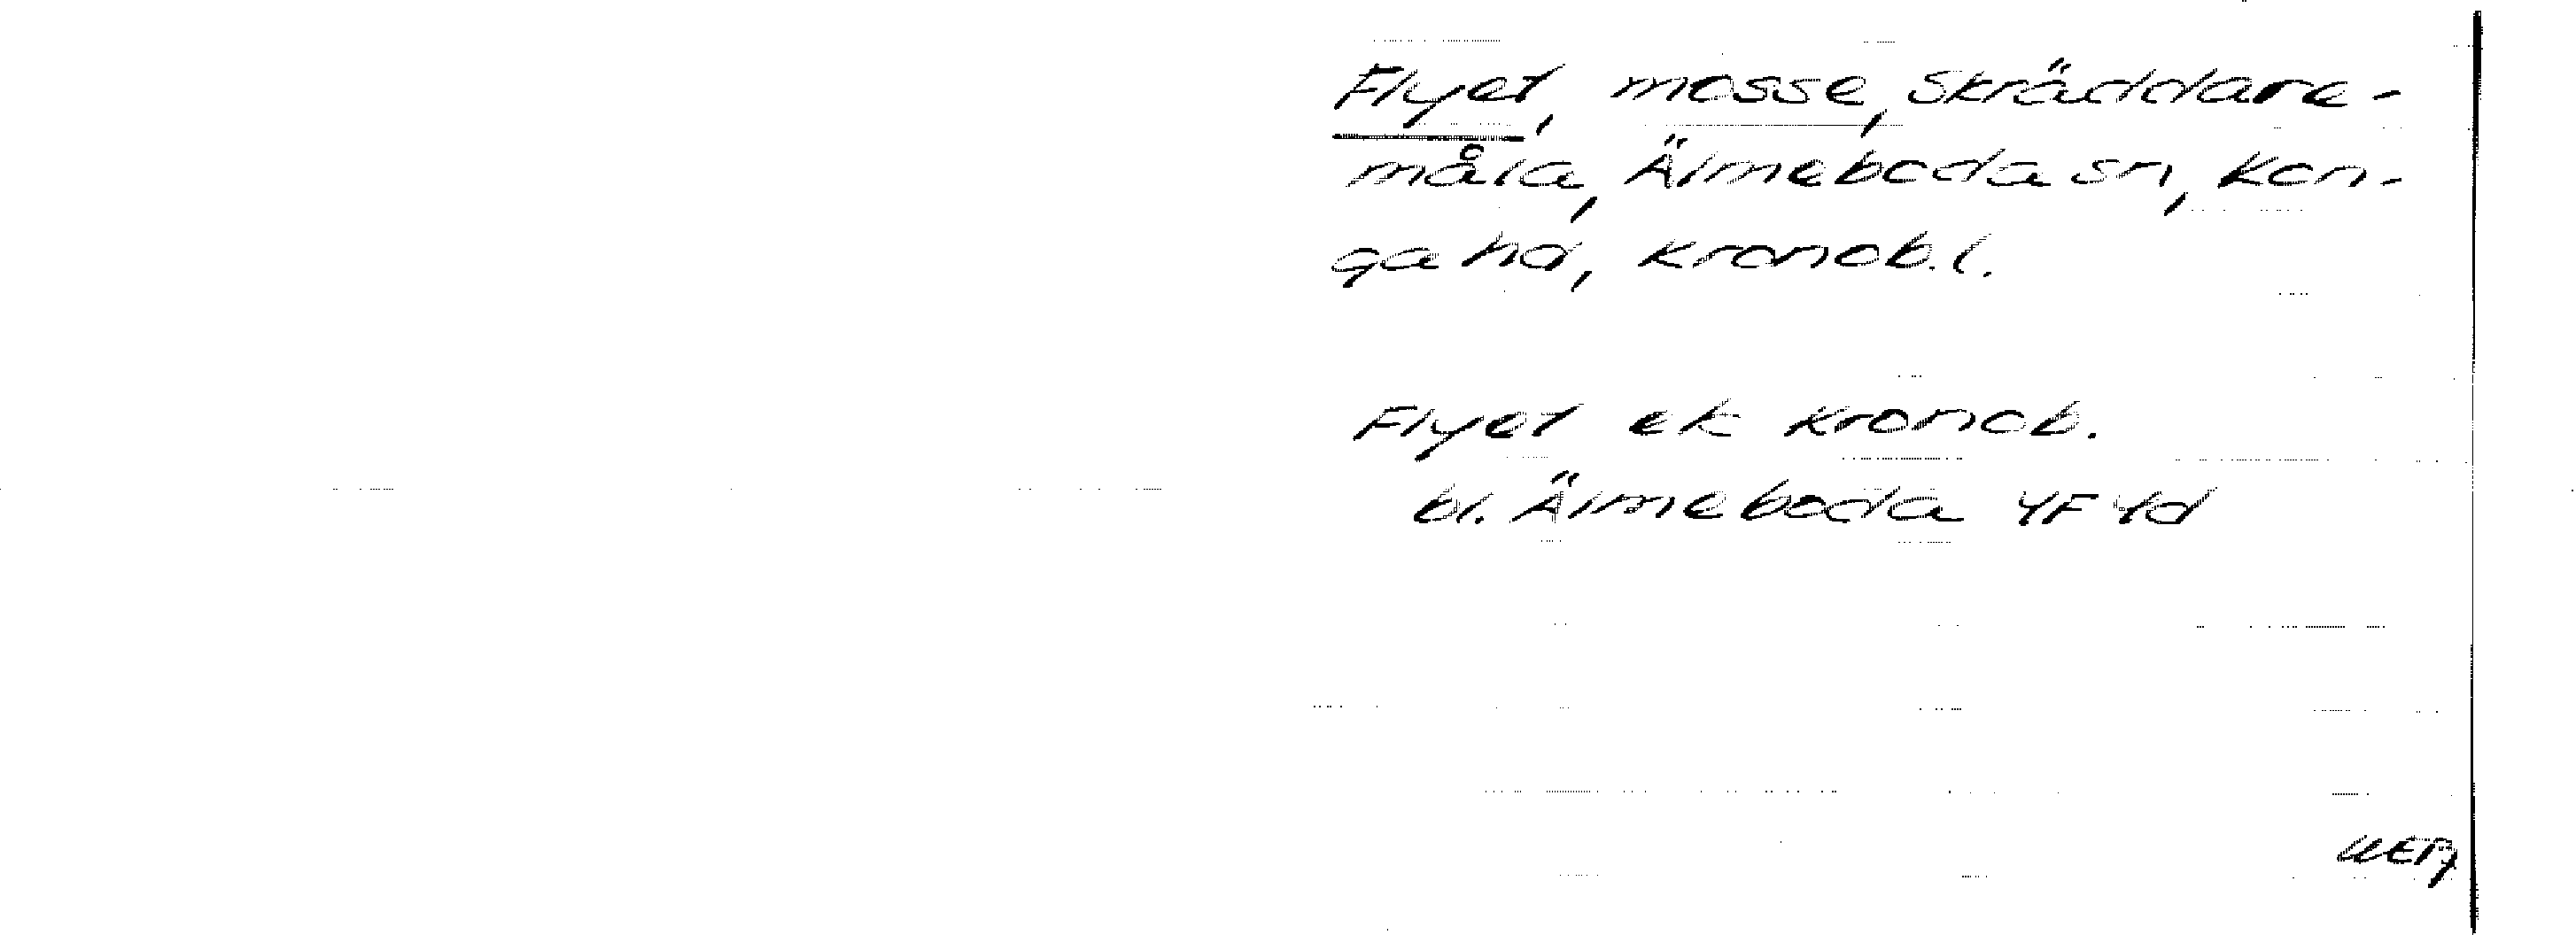 Flyet, mosse, Skräddare-
måla, Älmeboda sn, Kon-
ga hd, Kronob. l.
Flyet ek Kronob.
bl. Älmeboda 4F 4d